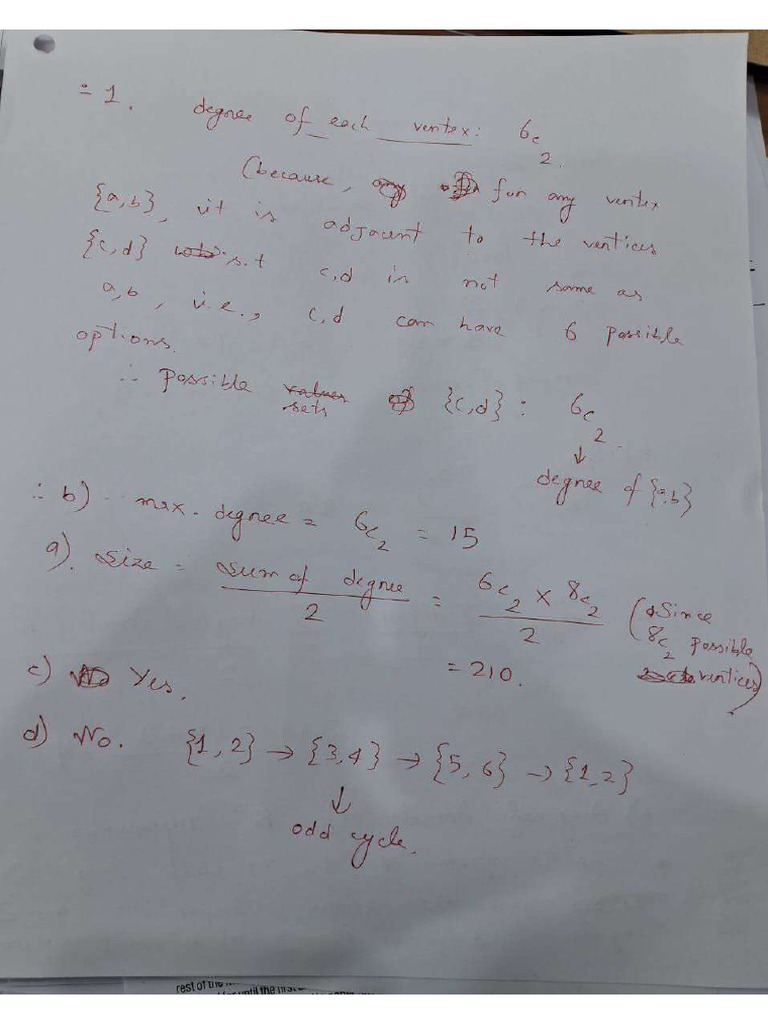 = 1. degree of each vertex: 6c2.
(because, for any vertex
{a,b}, it is adjacent to the vertices
{c,d} s.t c,d is not same as
a,b, i.e., c,d can have 6 possible
options.
∴ possible sets of {c,d} : 6c2.
↓
degree of {a,b}
∴ b) max. degree = 6c2 = 15
a). size = sum of degree / 2 = 6c2 × 8c2 / 2 (Since 8c2 possible vertices)
= 210.
c) Yes.
d) No. {1,2} → {3,4} → {5,6} → {1,2}
↓
odd cycle.
rest of the
until the first